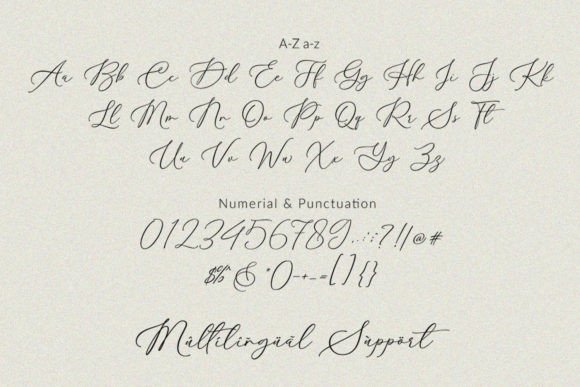 A-Z a-z
Aa Bb Cc Dd Ee Ff Gg Hh Ii Jj Kk
Ll Mm Nn Oo Pp Qq Rr Ss Tt
Uu Vv Ww Xx Yy Zz
Numerial & Punctuation
0123456789.,:;?!/|@#
$%^&*()-+_=[]{}
Múltilingüäl Sùppört